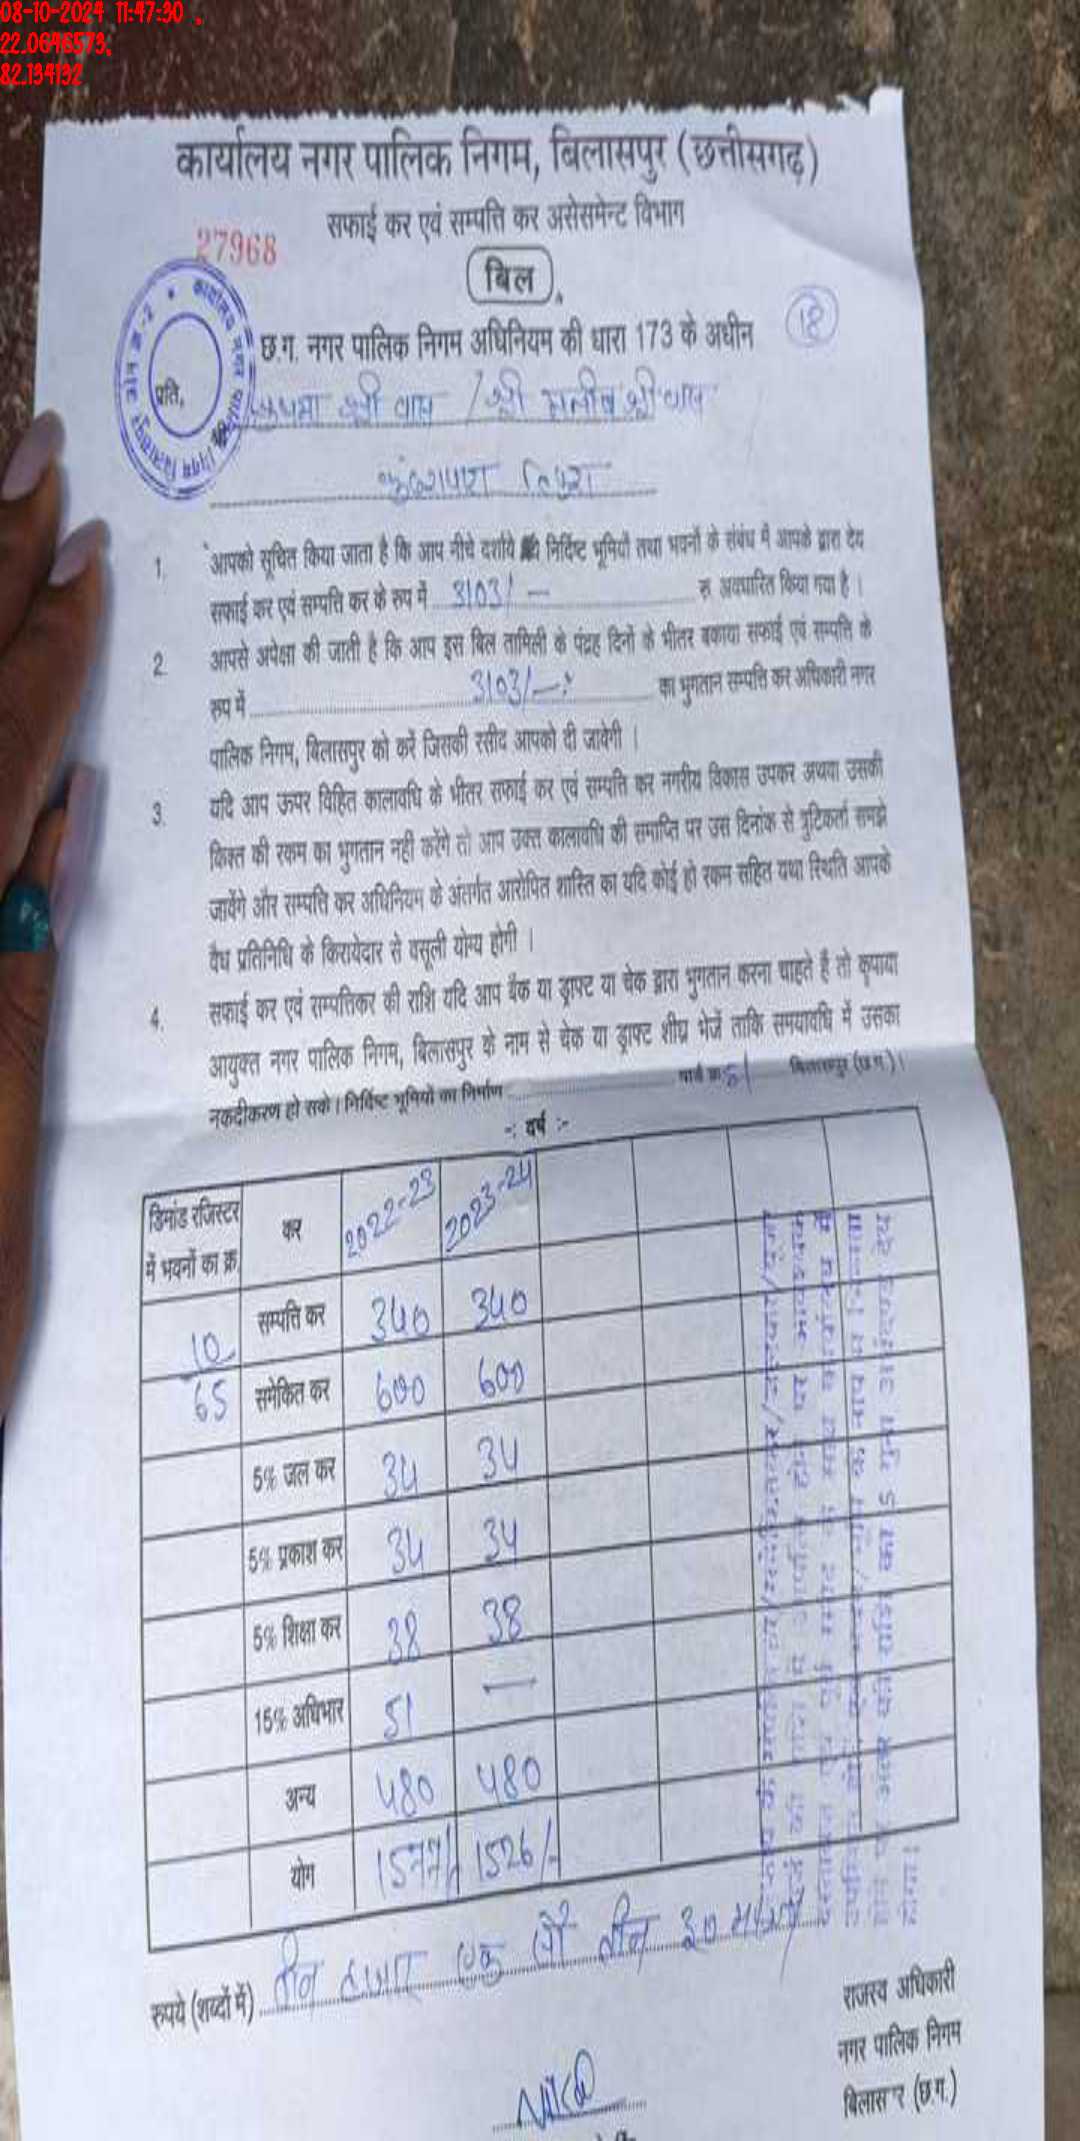 08-10-2024 11:47:30 ,
22.0646573,
82.134132
कार्यालय नगर पालिक निगम, बिलासपुर (छत्तीसगढ़)
सफाई कर एवं सम्पत्ति कर असेसमेन्ट विभाग
27968
बिल
18
छ.ग. नगर पालिक निगम अधिनियम की धारा 173 के अधीन
प्रति,
श्री वास / श्री श्री वास
1. आपको सूचित किया जाता है कि आप नीचे दर्शाये निर्दिष्ट भूमियों तथा भवनों के संबंध में आपके द्वारा देय
सफाई कर एवं सम्पत्ति कर के रूप में 3103/- रु अवधारित किया गया है।
2. आपसे अपेक्षा की जाती है कि आप इस बिल तामिली के पंद्रह दिनों के भीतर बकाया सफाई एवं सम्पत्ति के
रूप में 3103/- का भुगतान सम्पत्ति कर अधिकारी नगर
पालिक निगम, बिलासपुर को करें जिसकी रसीद आपको दी जावेगी।
3. यदि आप ऊपर विहित कालावधि के भीतर सफाई कर एवं सम्पत्ति कर नगरीय विकास उपकर अथवा उसकी
किश्त की रकम का भुगतान नही करेंगे तो आप उक्त कालावधि की समाप्ति पर उस दिनांक से त्रुटिकर्ता समझे
जावेंगे और सम्पत्ति कर अधिनियम के अंतर्गत आरोपित शास्ति का यदि कोई हो रकम सहित यथा स्थिति आपके
वैध प्रतिनिधि के किरायेदार से वसूली योग्य होगी।
4. सफाई कर एवं सम्पत्तिकर की राशि यदि आप बैंक या ड्राफ्ट या चेक द्वारा भुगतान करना चाहते है तो कृपाया
आयुक्त नगर पालिक निगम, बिलासपुर के नाम से चेक या ड्राफ्ट शीघ्र भेजें ताकि समयावधि में उसका
नकदीकरण हो सके। निर्दिष्ट भूमियों का निर्माण वार्ड क्र. बिलासपुर (छ.ग.)।
-: वर्ष :-
डिमांड रजिस्टर में भवनों का क्र. कर 2022-23 2023-24
10 सम्पत्ति कर 340 340
65 समेकित कर 600 600
5% जल कर 34 34
5% प्रकाश कर 34 34
5% शिक्षा कर 38 38
15% अधिभार 51 —
अन्य 480 480
योग 1577/- 1526/-
रुपये (शब्दों में) तीन हजार एक सौ तीन रू0 मात्र
राजस्व अधिकारी
नगर पालिक निगम
(छ.ग.)